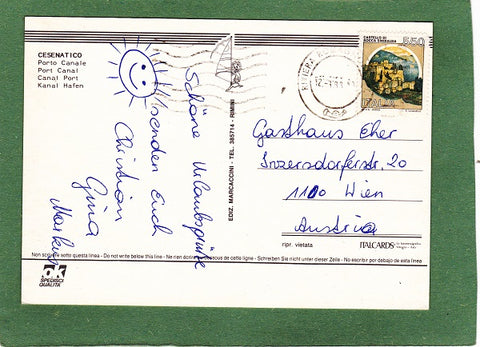 CESENATICO
Porto Canale
Port Canal
Canal Port
Kanal Hafen
Schöne Urlaubsgrüße
senden Euch
Christian
Gina
Markus
EDIZ. MARCACCINI - TEL. 385714 - RIMINI
CASTELLO DI
ROCCA SINIBALDA
550
ITALIA
Gasthaus Eher
Inzersdorferstr. 20
1100 Wien
Austria
ripr. vietata
ITALCARDS
Non scrivere sotto questa linea - Do not write below this line - Ne rien écrire au dessous de cette ligne - Schreiben Sie nicht unter dieser Zeile - No escribir por debajo de esta línea
ok
SPEDISCI
QUALITÀ